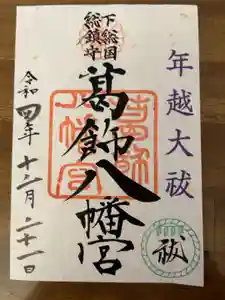 年越大祓
下総国
総鎮守
葛飾八幡宮
葛飾
八幡宮
令和四年十二月二十一日
祓